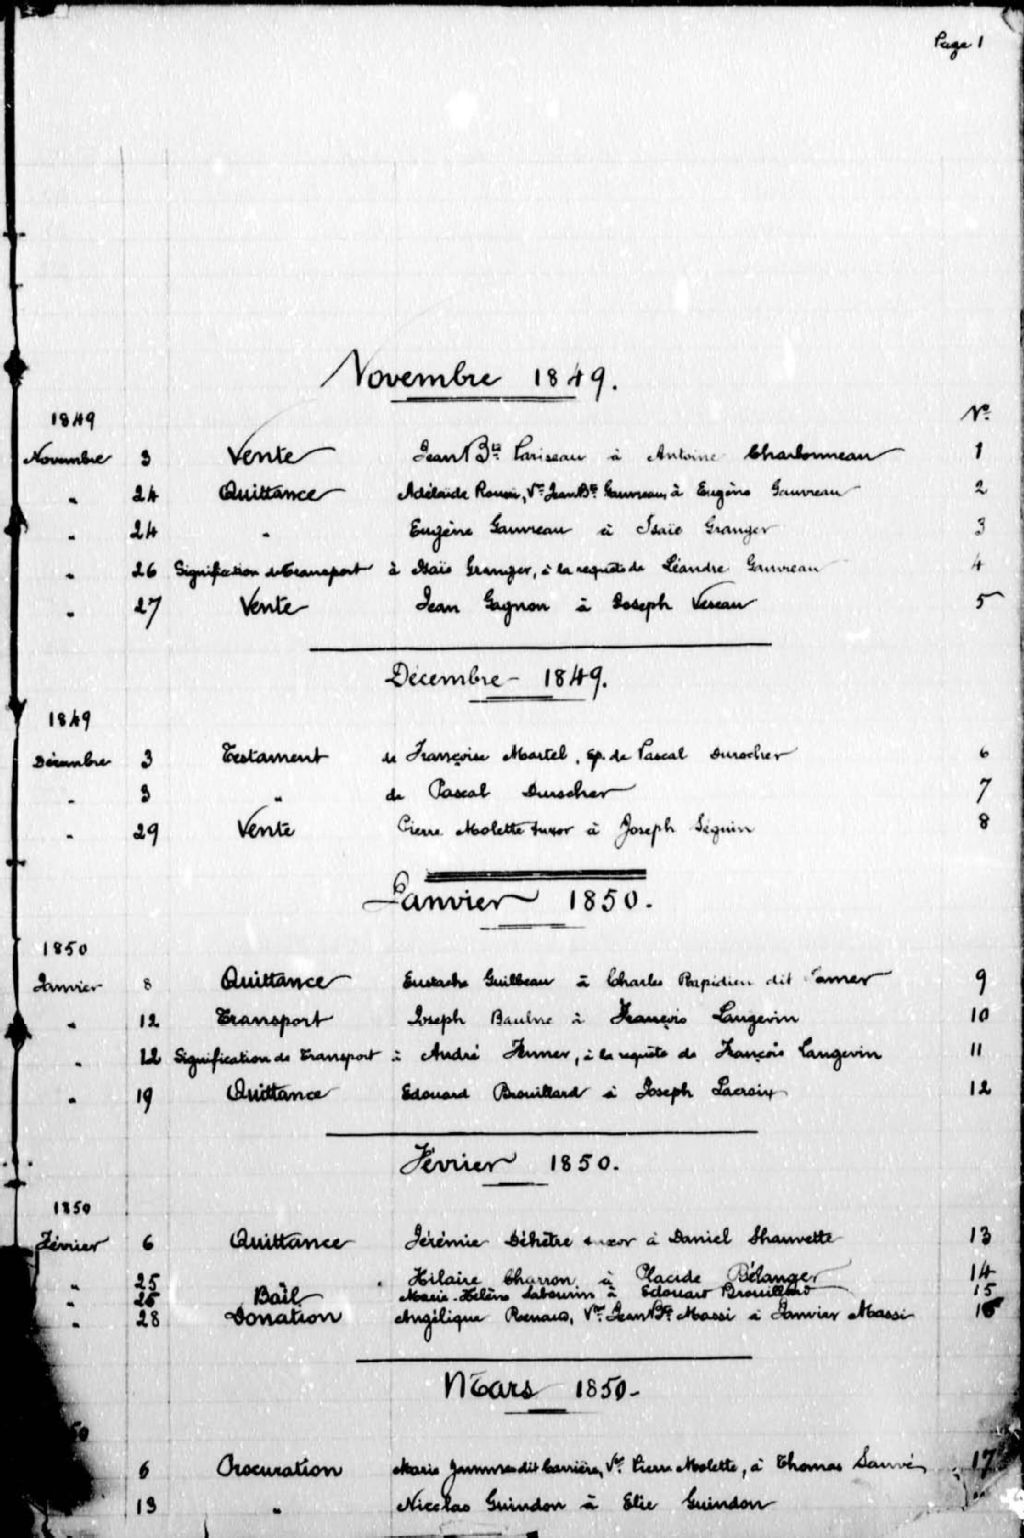 Page 1
Novembre 1849.
1849 No.
Novembre 3 Vente Jean Bte Pariseau à Antoine Charbonneau 1
" 24 Quittance Adélaïde Vve Jean Bte Gauvreau, à Eugène Gauvreau 2
" 24 " Eugène Gauvreau à Isaïe Granger 3
" 26 Signification de transport à Isaïe Granger, à la requête de Léandre Gauvreau 4
" 27 Vente Jean Gagnon à Joseph 5
Décembre - 1849.
1849
Décembre 3 Testament de Françoise Martel, ép. de Pascal Durocher 6
" 3 " de Pascal Durocher 7
" 29 Vente Pierre Molette & uxor à Joseph Séguin 8
Janvier 1850.
1850
Janvier 8 Quittance Eustache Guilbeau à Charles Rapidieu dit 9
" 12 Transport Joseph Baulne à François Langevin 10
" 12 Signification de Transport à André à la requête de François Langevin 11
" 19 Quittance Edouard Brouillard à Joseph Lacroix 12
Février 1850.
1850
Février 6 Quittance Jérémie Déhêtre & uxor à Daniel Shauvette 13
" 25 " Hilaire Charron à Placide Bélanger 14
" 26 Bail Marie-Hélène Labourin à Edouard Brouillard 15
" 28 Donation Angélique Renaud, Vve Jean Bte Massi à Janvier Massi 16
Mars 1850-
50
6 Procuration Marie dit Carrière, Vve Pierre Molette, à Thomas Sauvé 17
13 " Nicolas Guindon à Elie Guindon